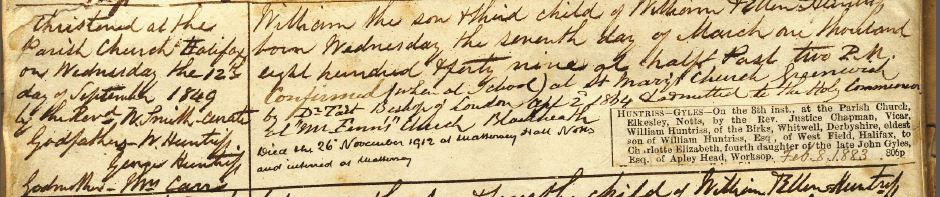 Christened at the
Parish Church Halifax
on Wednesday the 12th
day of September 1849
by the Revd W. Smith Curate
Godfathers W. Huntriss
George Huntriss
Godmother Mrs Carr
William the son & third child of William & Ellen Huntriss
born Wednesday the seventh day of March one thousand
eight hundred & forty nine at half Past two P.M.
Confirmed (when at School) at St Mary's Church Greenwich
by Dr Tait Bishop of London Apl 2d 1864 Admitted to the Holy Communion
at Mr Church Blackheath
Died the 26th November 1912 at Mattersey Hall Notts
and interred at Mattersey
HUNTRISS–GYLES–On the 8th inst., at the Parish Church,
Elkesley, Notts, by the Rev. Justice Chapman, Vicar,
William Huntriss, of the Birks, Whitwell, Derbyshire, eldest
son of William Huntriss, Esq. of West Field, Halifax, to
Charlotte Elizabeth, fourth daughter of the late John Gyles,
Esq. of Apley Head, Worksop. Feb. 8. 1883. 806p
child of William & Ellen Huntriss